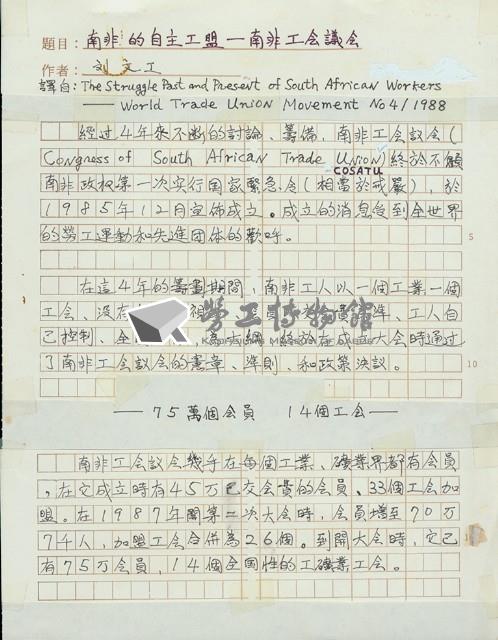 題目：南非的自主工盟一南非工会議会
作者：刘文工
譯自：The Struggle Past and Present of South African Workers
—— World Trade Union Movement No 4/1988
經过4年來不斷的討論、籌備，南非工会議会(
Congress of South African Trade Union)終於不顧
COSATU
南非政权第一次实行国家緊急令(相當於戒嚴)，於
1985年12月宣佈成立。成立的消息受到全世界
的勞工運動和先進团体的歡呼。
5
在這4年的籌畫期間，南非工人以一個工業一個
工会、没在
工人自
己控制、全
於在成立大会時通过
了南非工会議会的憲章、準則、和政策決議。
10
勞工博物館
——75萬個会員 14個工会——
南非工会議会幾乎在每個工業、礦業界都有会員
，在它成立時有45万已交会費的会員、33個工会加
盟。在1987年開第二次大会時，会員增至70万
74人，加盟工会合併為26個。到開大会時，它已
有75万会員，14個全国性的工礦業工会。